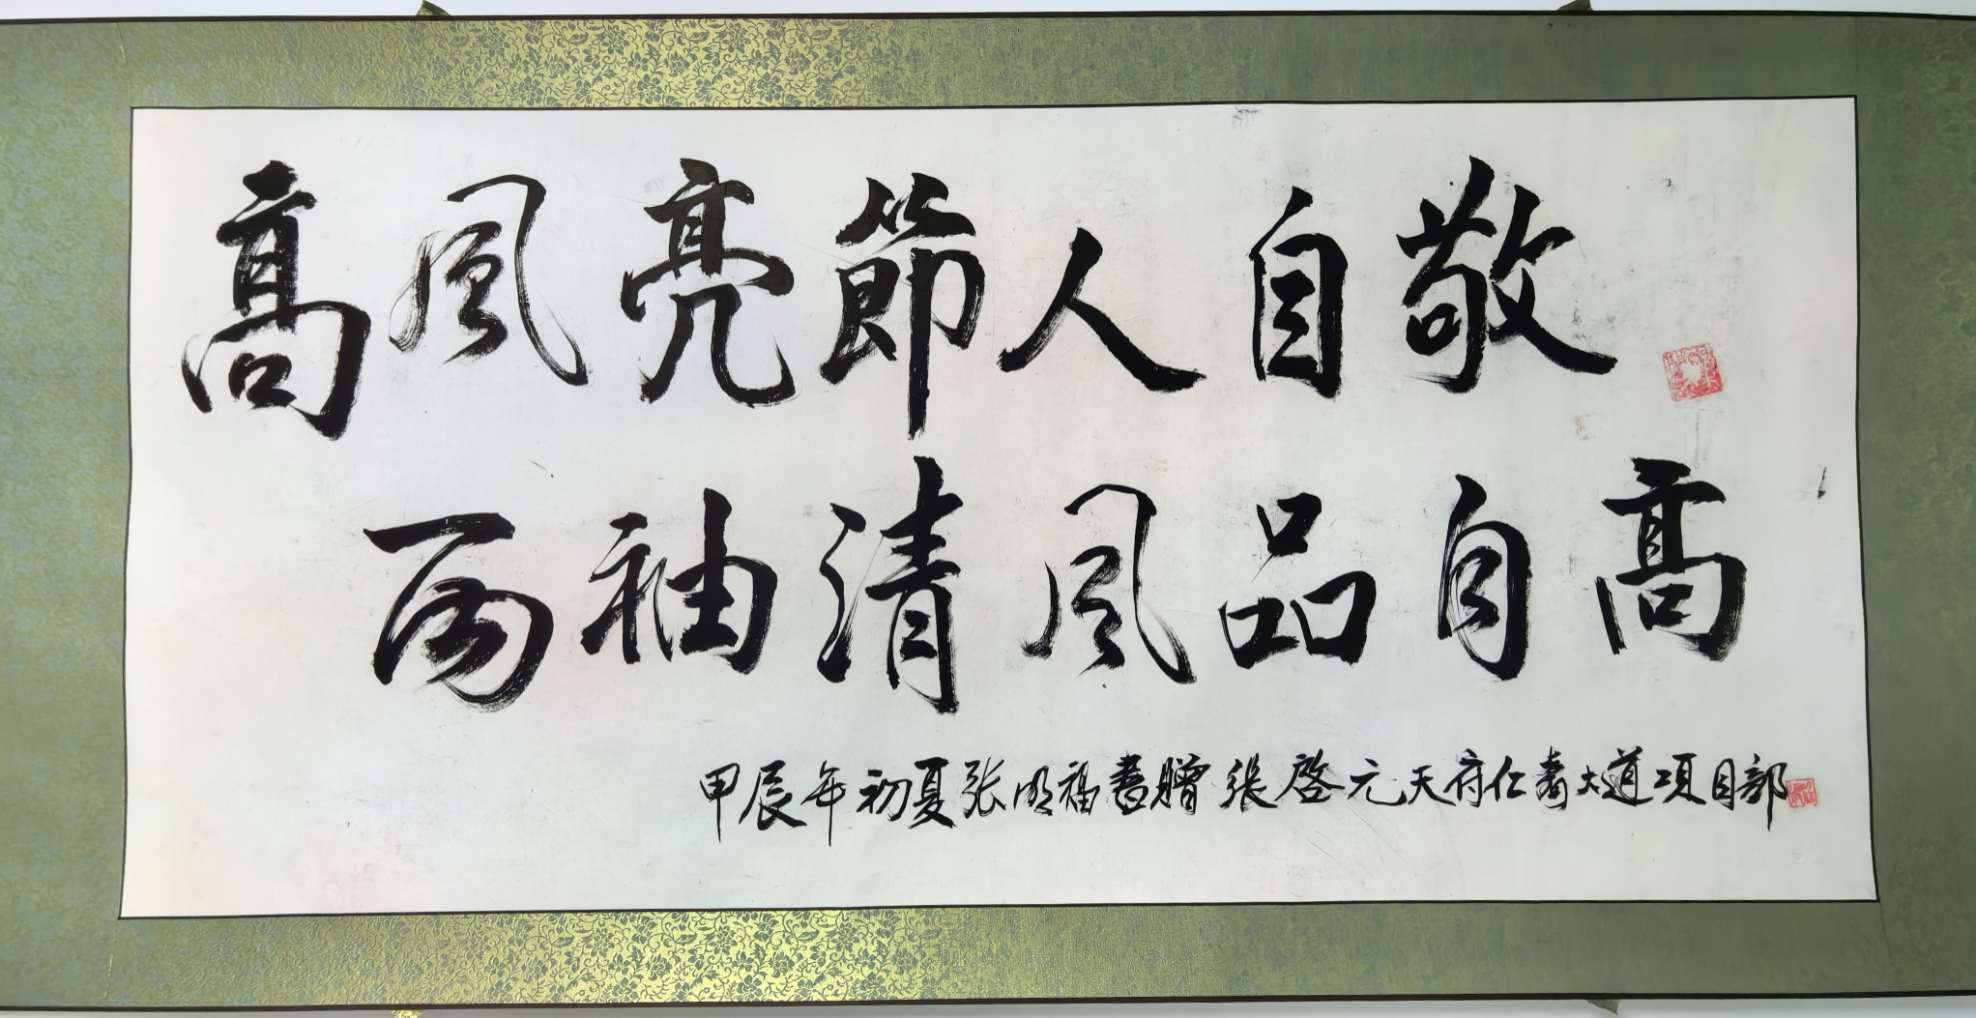 高風亮節人自敬
两袖清風品自高
甲辰年初夏张明福書贈張啓元天府仁寿大道項目部